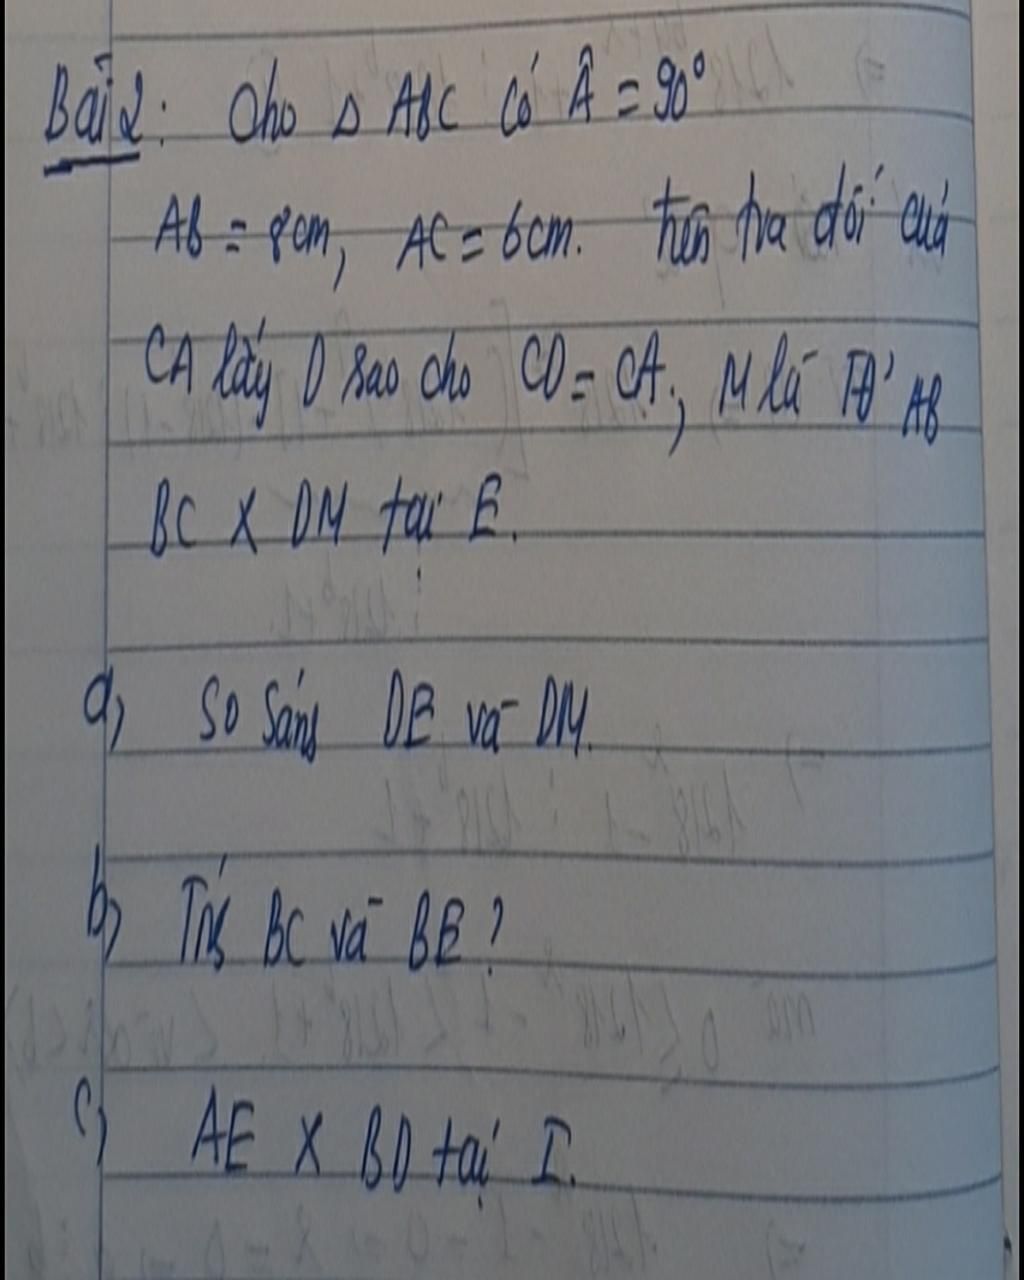 Bài 2: Cho Δ ABC có Â = 90°
AB = 8cm, AC = 6cm. trên tia đối của
CA lấy D sao cho CD = CA, M là TĐ' AB
BC X DM tại E.
a, So sánh DE và DM.
b, Tính BC và BE?
c, AE X BD tại I.